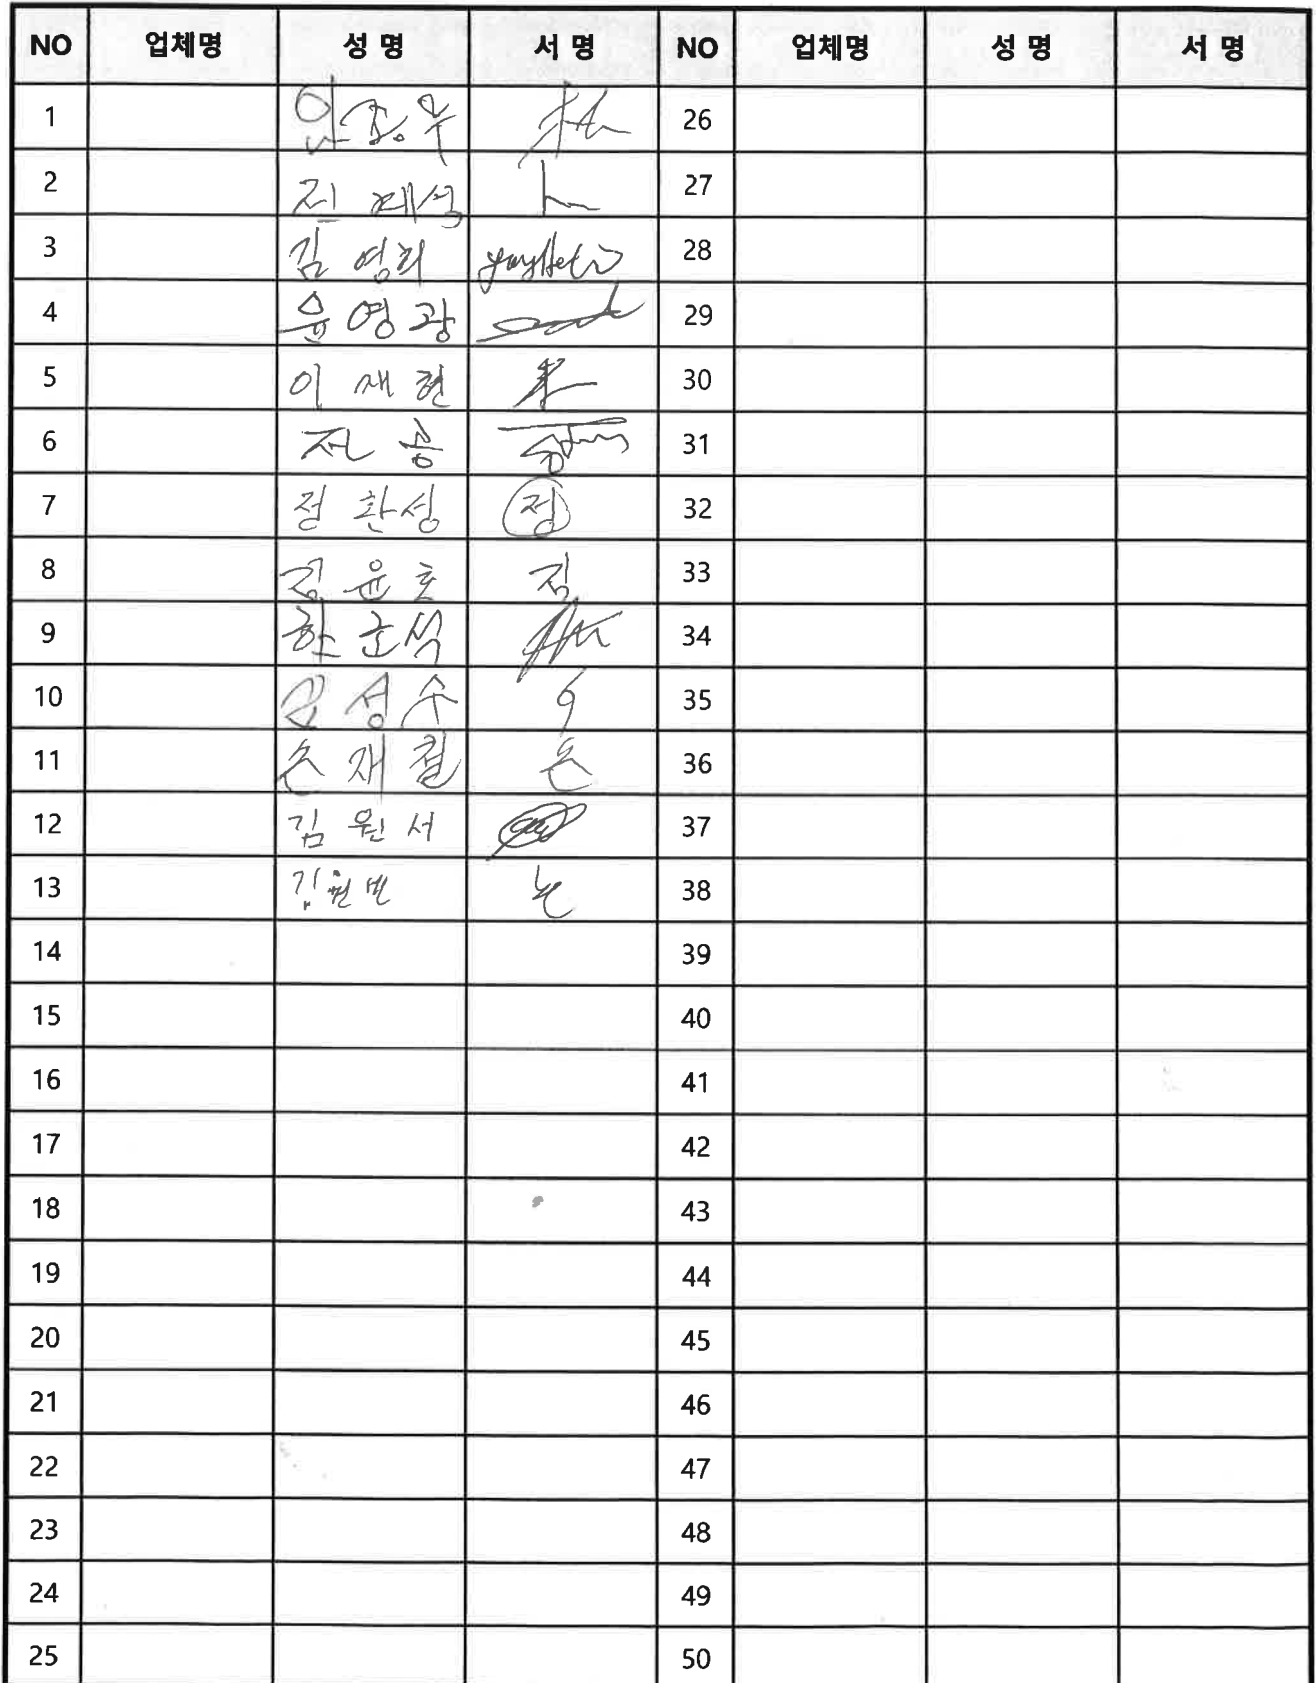 NO 업체명 성 명 서 명 NO 업체명 성 명 서 명
1 안종우 26
2 전제성 27
3 김영희 28
4 윤영광 29
5 이재현 30
6 전공 31
7 정찬성 정 32
8 정윤호 정 33
9 한군석 34
10 성수 35
11 손재철 손 36
12 김원서 37
13 김원빈 38
14 39
15 40
16 41
17 42
18 43
19 44
20 45
21 46
22 47
23 48
24 49
25 50